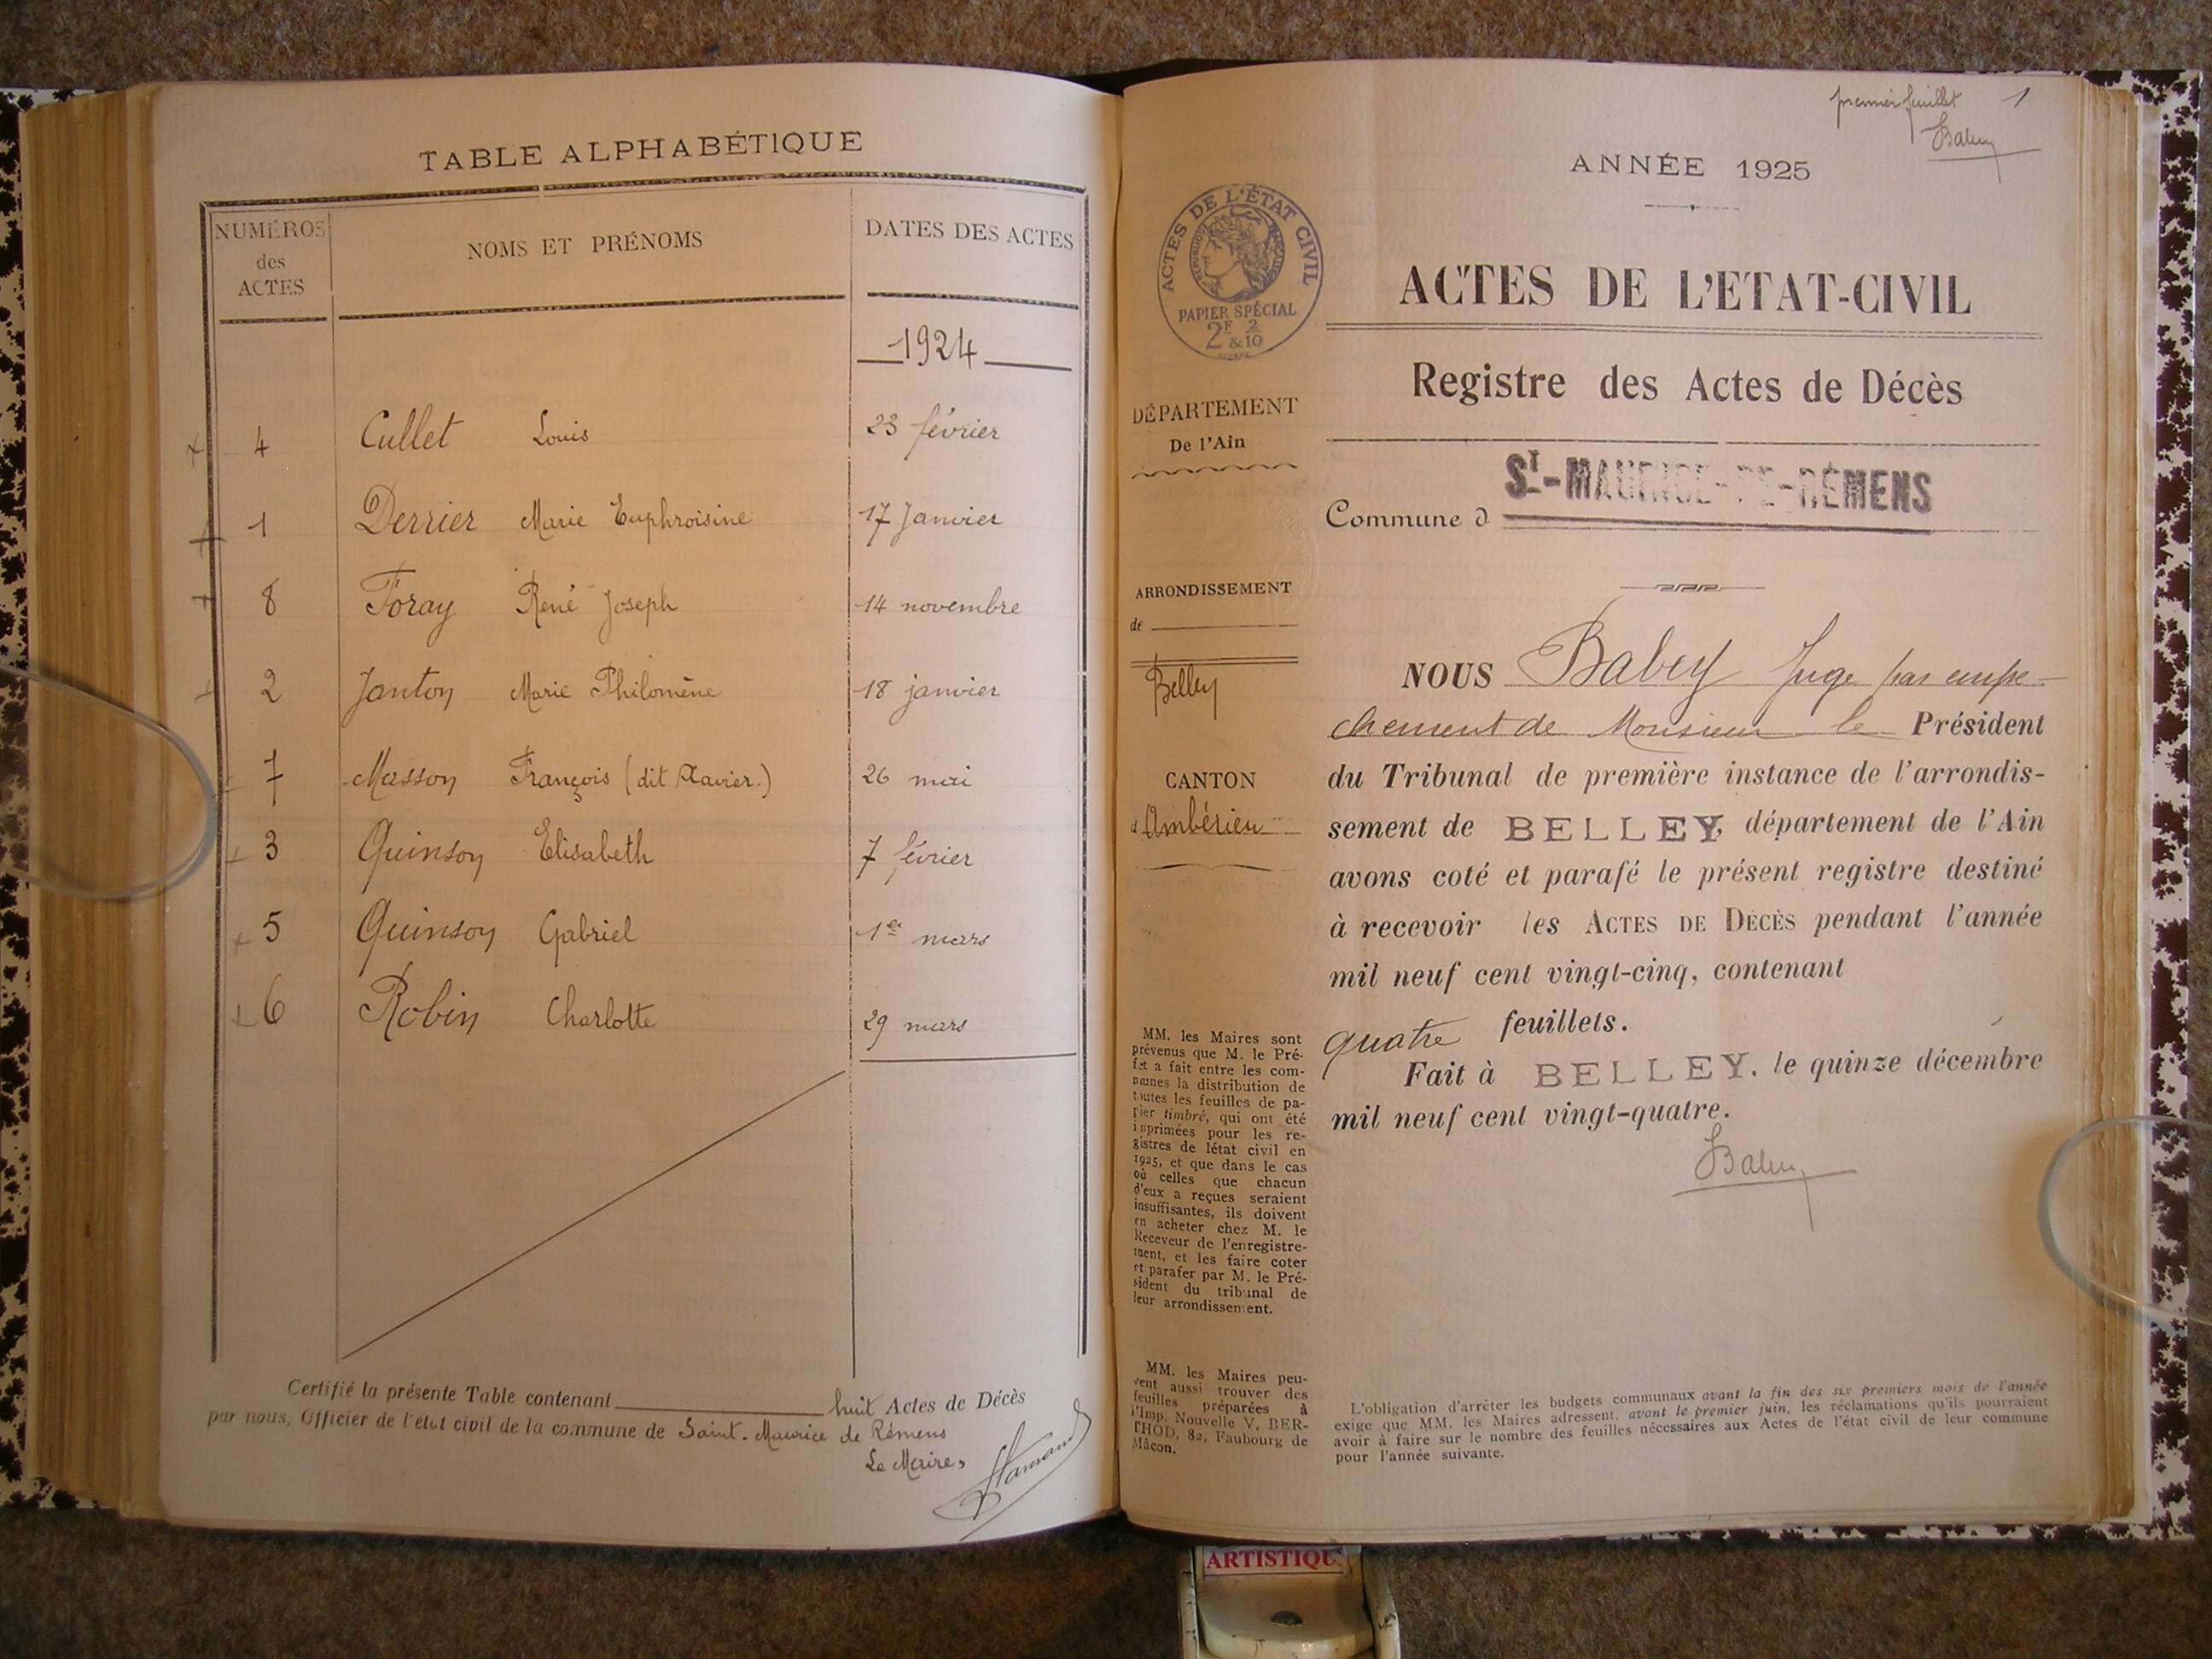 TABLE ALPHABÉTIQUE
NUMÉROS des ACTES
NOMS ET PRÉNOMS
DATES DES ACTES
1924
4 Cullet Louis 23 février
1 Derrier Marie Euphroisine 17 Janvier
8 Foray René Joseph 14 novembre
2 Janton Marie Philomène 18 janvier
7 Masson François (dit Xavier.) 26 mai
3 Quinson Elisabeth 7 février
5 Quinson Gabriel 1er mars
6 Robin Charlotte 29 mars
Certifié la présente Table contenant huit Actes de Décès
par nous, Officier de l'état civil de la commune de Saint-Maurice de Rémens
Le Maire,
premier feuillet 1
Babey
ANNÉE 1925
ACTES DE L'ÉTAT CIVIL
RÉPUBLIQUE FRANÇAISE
PAPIER SPÉCIAL
2F & 2/10
ACTES DE L'ETAT-CIVIL
Registre des Actes de Décès
DÉPARTEMENT
De l'Ain
ST-MAURICE-DE-RÉMENS
Commune d
ARRONDISSEMENT
de
Belley
CANTON
d'Ambérieu
NOUS Babey Juge par empe-
chement de Monsieur le Président
du Tribunal de première instance de l'arrondis-
sement de BELLEY, département de l'Ain
avons coté et parafé le présent registre destiné
à recevoir les ACTES DE DÉCÈS pendant l'année
mil neuf cent vingt-cinq, contenant
quatre feuillets.
Fait à BELLEY. le quinze décembre
mil neuf cent vingt-quatre.
Babey
MM. les Maires sont
prévenus que M. le Pré-
fet a fait entre les com-
munes la distribution de
toutes les feuilles de pa-
pier timbré, qui ont été
imprimées pour les re-
gistres de létat civil en
1925, et que dans le cas
où celles que chacun
d'eux a reçues seraient
insuffisantes, ils doivent
en acheter chez M. le
Receveur de l'enregistre-
ment, et les faire coter
et parafer par M. le Pré-
sident du tribunal de
leur arrondissement.
MM. les Maires peu-
vent aussi trouver des
feuilles préparées à
l'Imp. Nouvelle V. BER-
THOD, 82, Faubourg de
Mâcon.
L'obligation d'arrêter les budgets communaux avant la fin des six premiers mois de l'année
exige que MM. les Maires adressent, avant le premier juin, les réclamations qu'ils pourraient
avoir à faire sur le nombre des feuilles nécessaires aux Actes de l'état civil de leur commune
pour l'année suivante.
ARTISTIQU